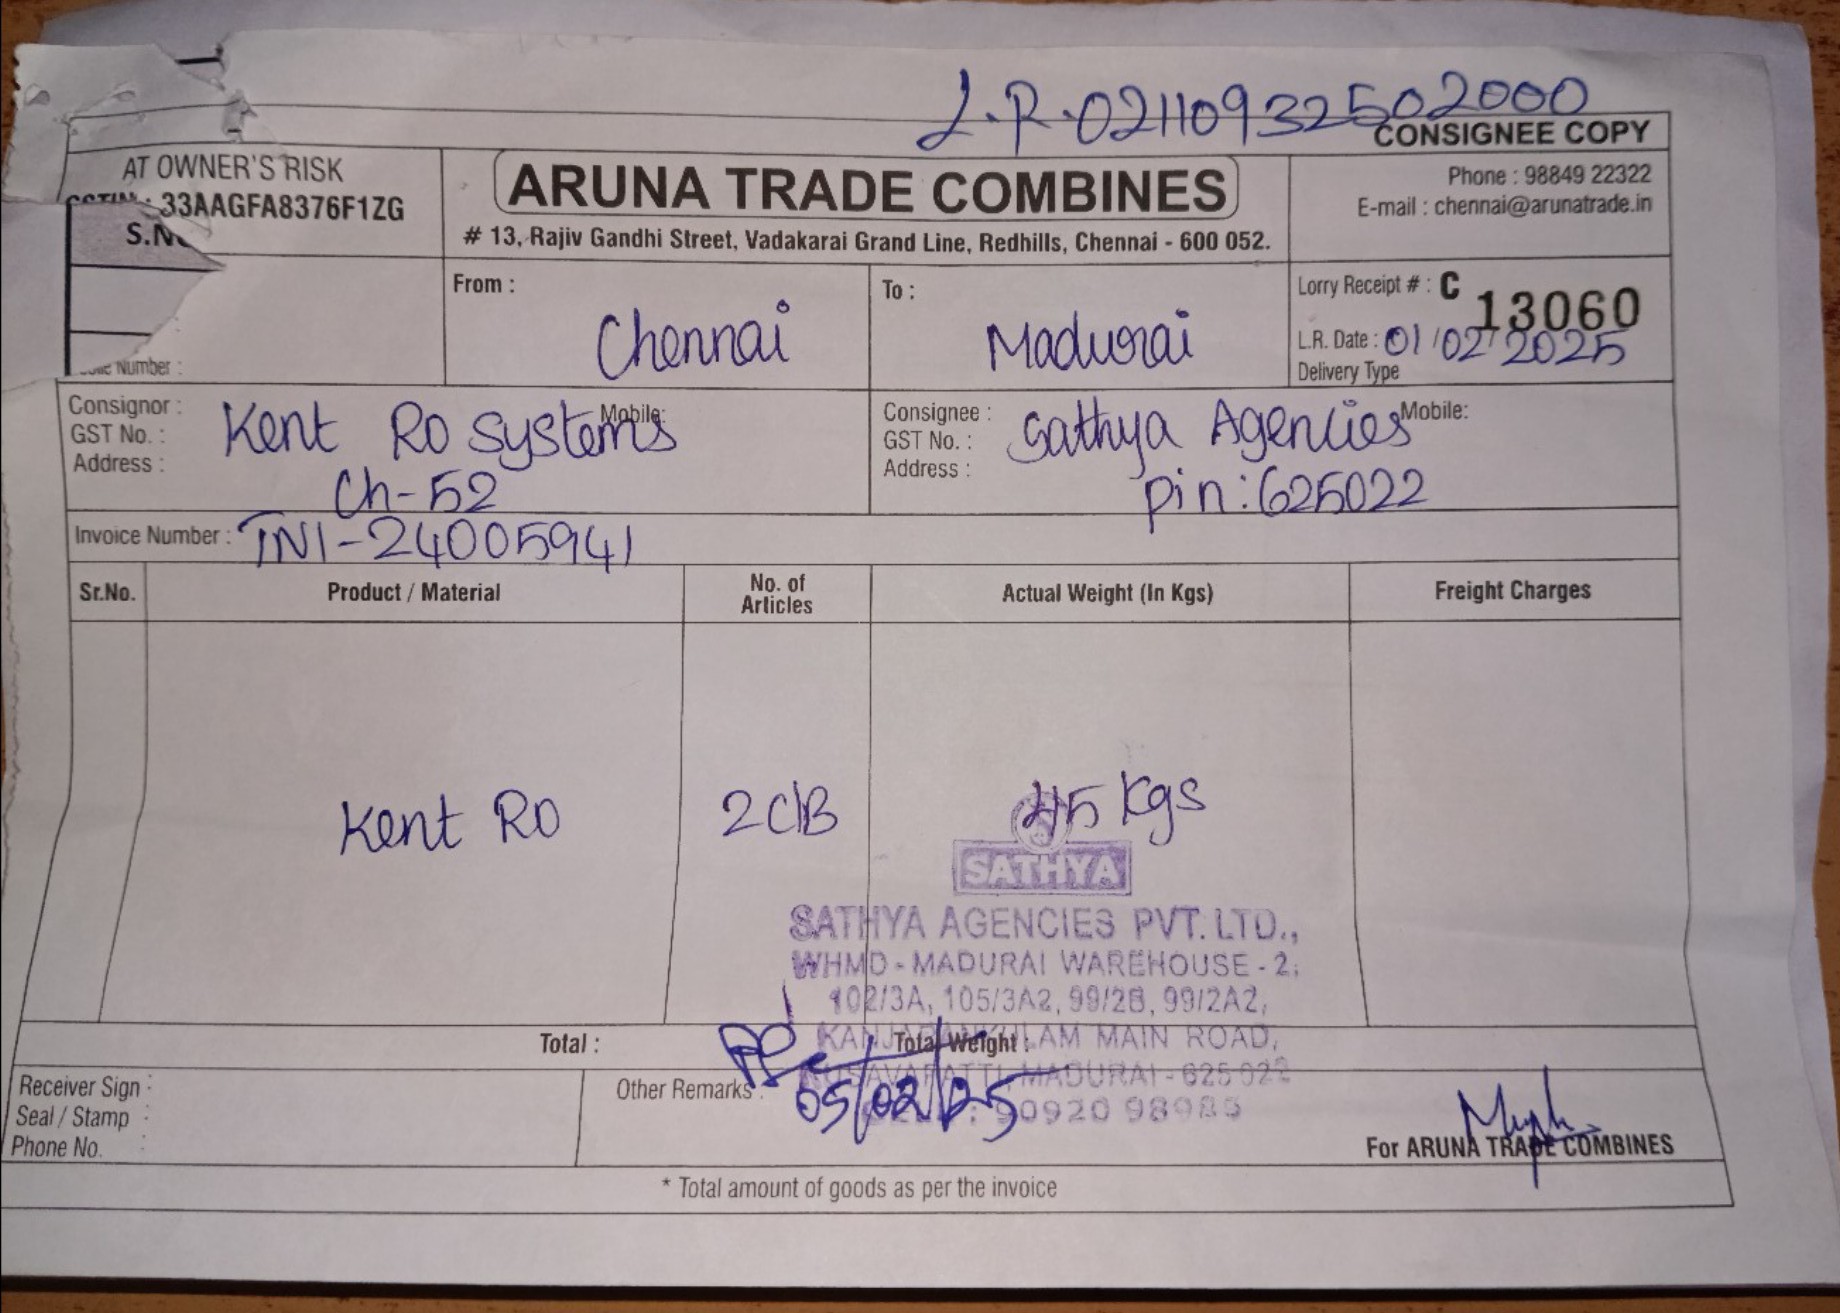 L.R.02110932502000
CONSIGNEE COPY
AT OWNER'S RISK
GSTIN : 33AAGFA8376F1ZG
S.N
ARUNA TRADE COMBINES
# 13, Rajiv Gandhi Street, Vadakarai Grand Line, Redhills, Chennai - 600 052.
Phone : 98849 22322
E-mail : chennai@arunatrade.in
Number :
From :
Chennai
To :
Madurai
Lorry Receipt # : C 13060
L.R. Date : 01/02/2025
Delivery Type
Consignor : Kent Ro Systems Mobile:
GST No. :
Address : Ch-52
Consignee : Sathya Agencies Mobile:
GST No. :
Address : Pin:625022
Invoice Number : TN1-24005941
Sr.No. Product / Material No. of Articles Actual Weight (In Kgs) Freight Charges
Kent RO 2C/B 45 Kgs
SATHYA
SATHYA AGENCIES PVT. LTD.,
WHMD - MADURAI WAREHOUSE - 2,
102/3A, 105/3A2, 99/2B, 99/2A2,
MAIN ROAD,
MADURAI - 625 022
90920 98985
Total : Total Weight :
Receiver Sign :
Seal / Stamp :
Phone No. :
Other Remarks :
05/02/25
For ARUNA TRADE COMBINES
* Total amount of goods as per the invoice